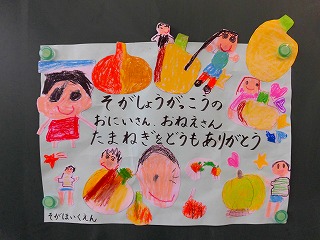 そがしょうがっこうの
おにいさん、おねえさん
たまねぎをどうもありがとう
そがほいくえん